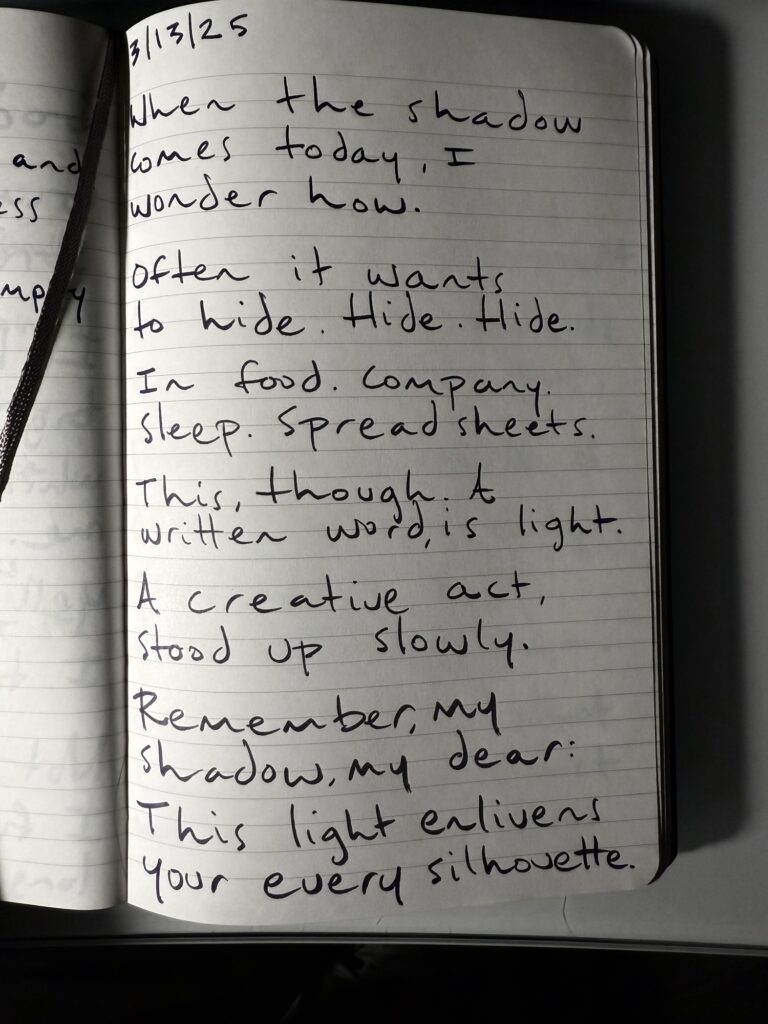 3/13/25
When the shadow
comes today, I
wonder how.
Often it wants
to hide. Hide. Hide.
In food. Company.
Sleep. Spreadsheets.
This, though. A
written word, is light.
A creative act,
stood up slowly.
Remember, my
shadow, my dear:
This light enlivens
your every silhouette.
and